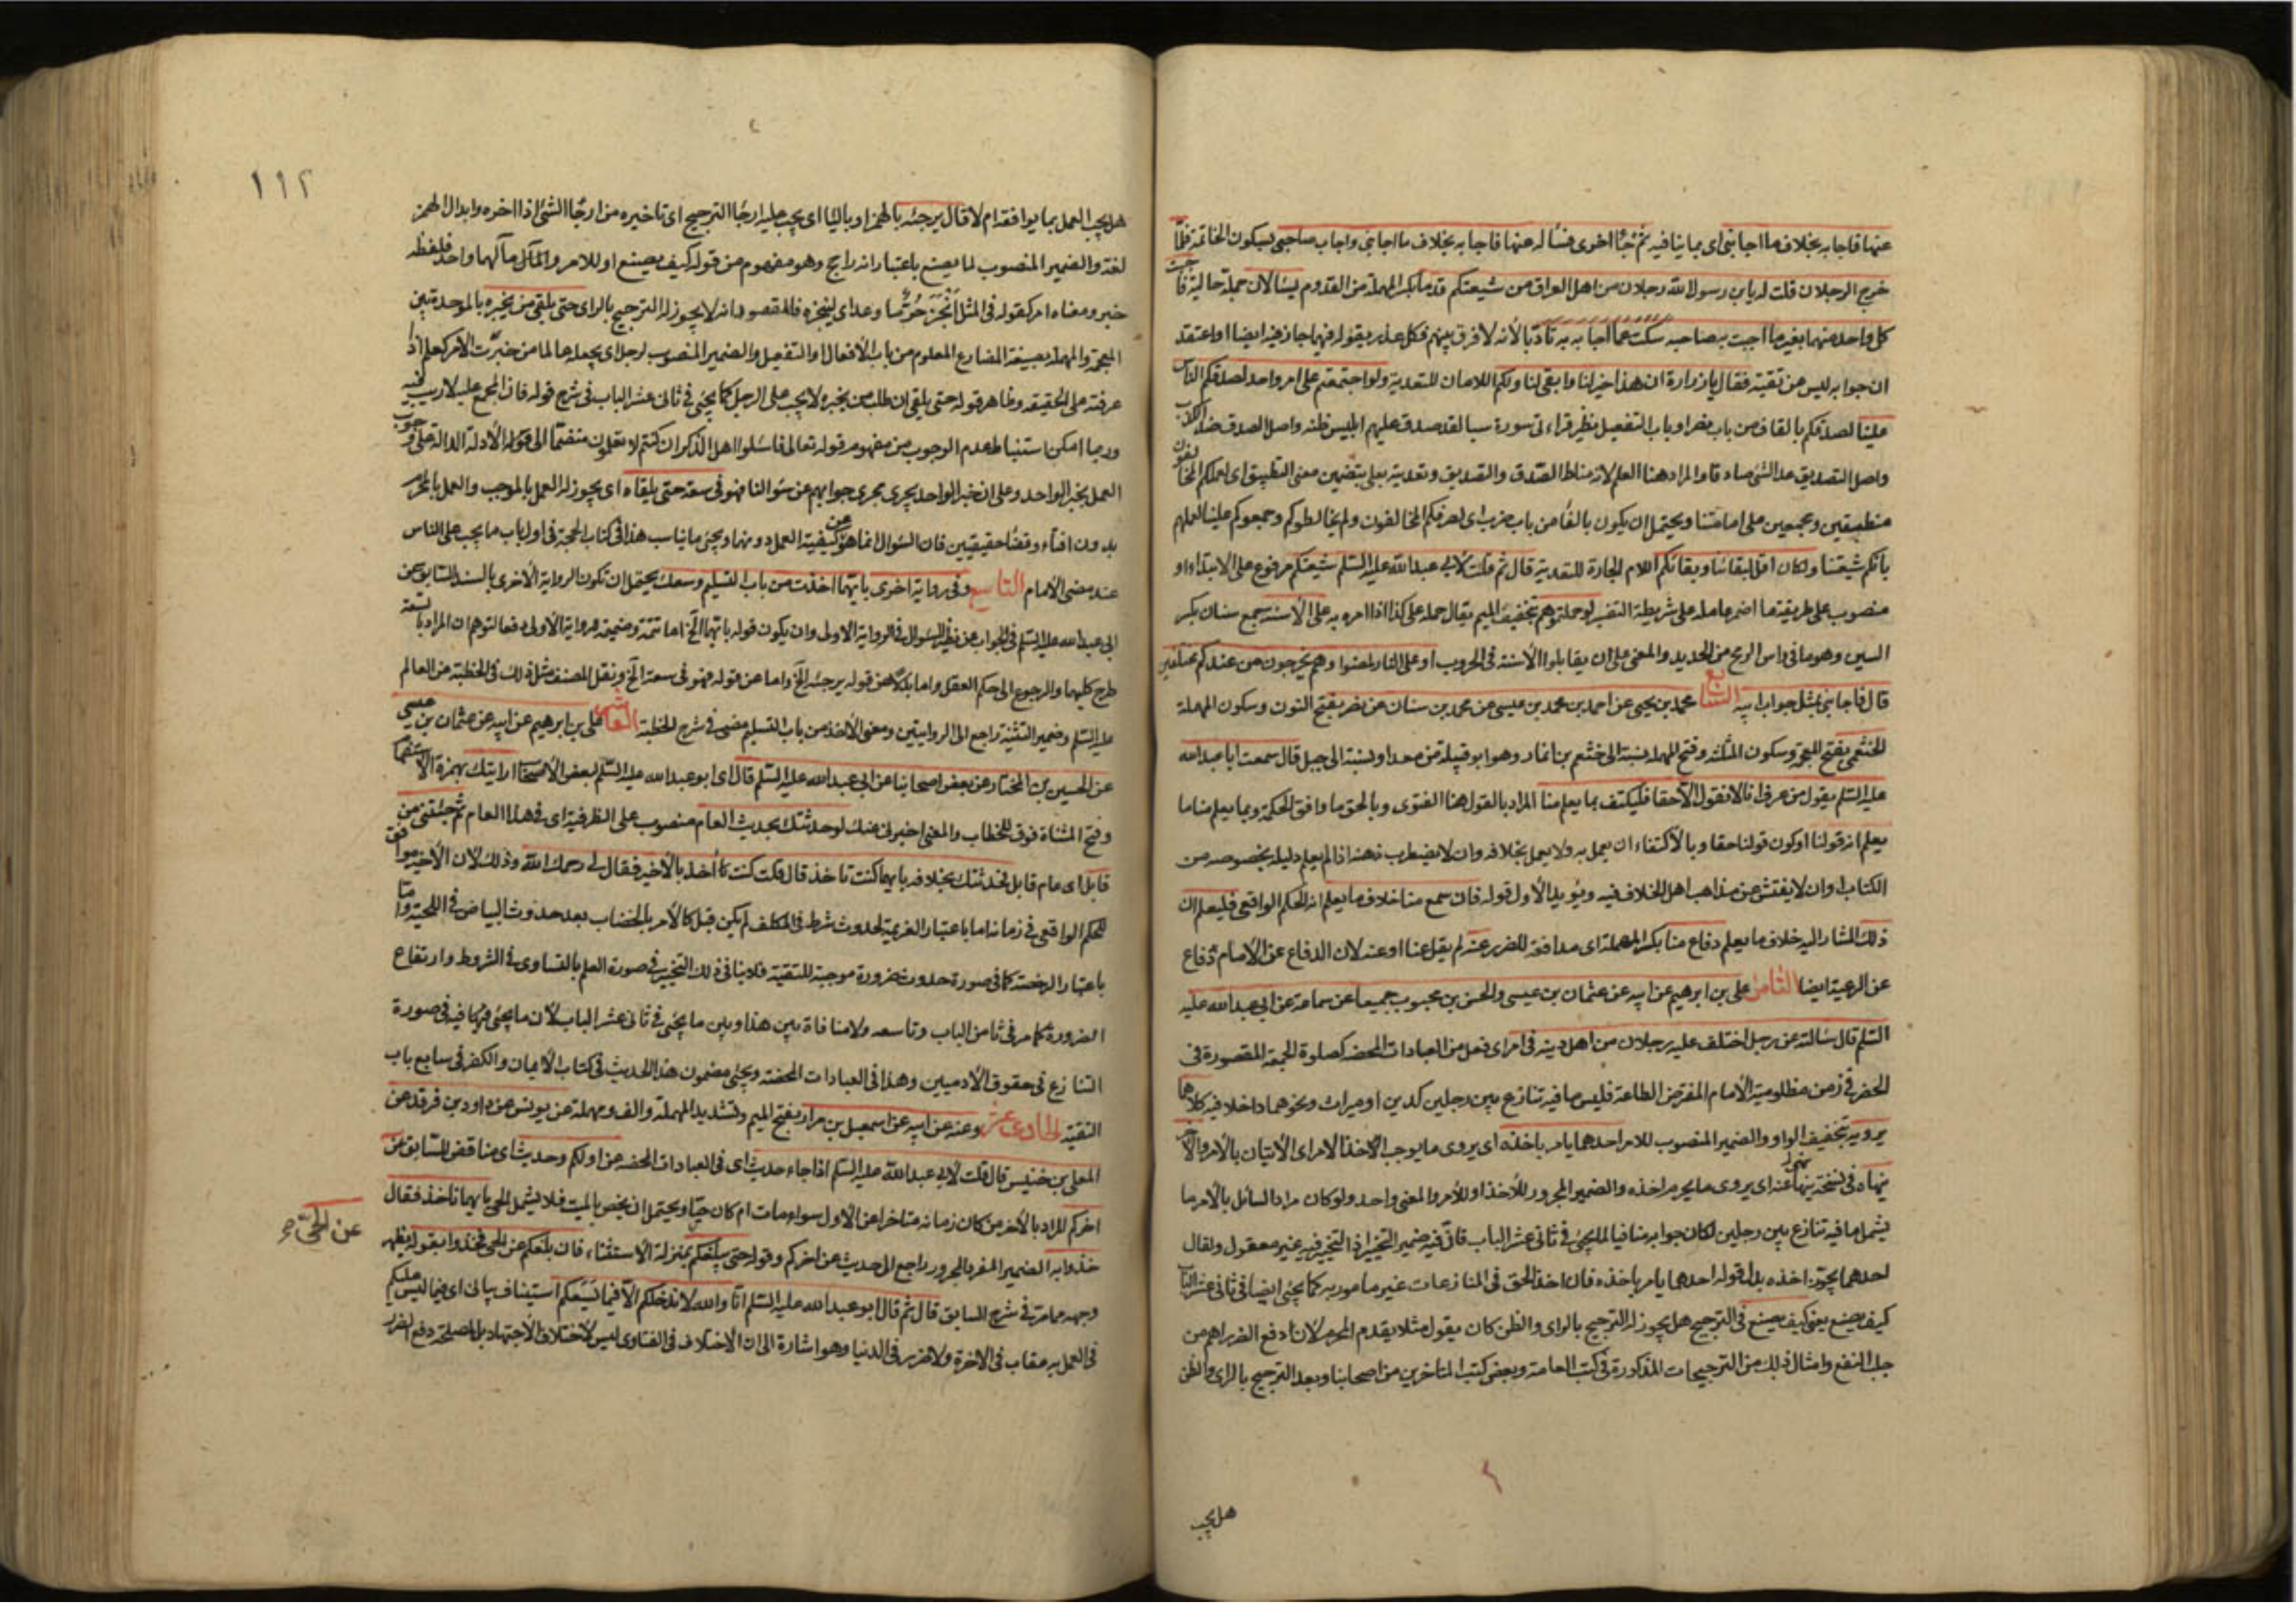 عنها فاجابه بخلاف ما اجابنى اى بما ينافيه ثم جاء اخرى فسأله عنها فاجابه بخلاف ما اجابنى واجاب صاحبى بسكون الخاتمة فلمّا
خرج الرجلان قلت له يابن رسول الله رجلان من اهل العراق من شيعتكم قدما بكسر المهملة من القدوم يسئالان جملة حالية فا جبت
كل واحد منهما بغير ما اجبت به صاحبه سكت عما اجابه به تادّبا لأنه لا فرق بينهم فكل عذر يقوله فيهما جاز فيه ايضا او اعتقد
ان جوابه ليس من تقية فقال يا زرارة ان هذا خير لنا وابقى لنا ولكم اللامان للتعدية ولو اجتمعتم على امر واحد لصدقكم الناس
علينا لصدقكم بالقاف من باب نصر او باب التفعيل نظير قراءتى سورة سبا لقد صدق عليهم ابليس ظنه واصل الصدق ضد الكذب
واصل التصديق عد الشئ صادقا والمراد هنا العلم لانه مناط الصدق والتصديق وتعديته بعلى بتضمين معنى التطبيق اى لعلمكم المخالفون
منطبقين ومجمعين على امامتنا ويحتمل ان يكون بالفاء من باب ضرب اى لصرفكم المخالفون ولم يخالطوكم وجمعوكم علينا لعلمهم
بانكم شيعتنا ولكان اقل لبقائنا وبقائكم اللام الجارة للتعدية قال ثم قلت لابى عبد الله عليه السلم شيعتكم مرفوع على الابتداء او
منصوب على طريقة ما اضمر عامله على شريطة التفسير لو حملتموهم بتخفيف الميم يقال حمله على كذا اذا امره به على الأسنة جمع سنان بكسر
السين وهو ما فى راس الرمح من الحديد والمعنى على ان يقابلوا الأسنة فى الحروب او على النار لمضوا وهم يخرجون من عندكم مختلفين
قال فاجابنى بمثل جواب ابيه السابع محمد بن يحيى عن احمد بن محمد بن عيسى عن محمد بن سنان عن نصر بفتح النون وسكون المهملة
الخثعمى بفتح المعجمة وسكون المثلثة وفتح المهملة نسبة الى خثعم بن انمار وهو ابو قبيلة من معد او نسبة الى جبل قال سمعت ابا عبد الله
عليه السلم يقول من عرف انا لا نقول الا حقا فليكتف بما يعلم منا المراد بالقول هنا الفتوى وبالحق ما وافق الحكمة وبما يعلم منا ما
يعلم انه قولنا او كون قولنا حقا وبالاكتفاء ان يعمل به ولا يعمل بخلافه وان لا يضطرب ذهنه اذا لم يعلم دليله بخصوصه من
الكتاب وان لا يفتش عن مذاهب اهل الخلاف فيه ويؤيد الأول قوله فان سمع منا خلاف ما يعلم انه الحكم الواقعى فليعلم ان
ذلك المشار اليه خلاف ما يعلم دفاع منا بكسر المهملة اى مدافعة للضرر عنه لم يقل عنا او عنه لان الدفاع عن الامام دفاع
عن الرعية ايضا الثامن على بن ابرهيم عن ابيه عن عثمان بن عيسى والحسن بن محبوب جميعا عن سماعة عن ابى عبد الله عليه
السلم قال سئالته عن رجل اختلف عليه رجلان من اهل دينه فى امر اى فعل من العبادات المحضة كصلوة الجمعة المقصورة فى
الحضر فى زمن مظلومية الامام المفترض الطاعة فليس مما فيه تنازع بين رجلين كدين او ميراث ونحوهما داخلا فيه كلاهما
يرويه بتخفيف الواو والضمير المنصوب للامر احدهما يامر باخذه اى يروى ما يوجب الاخذ الامر اى الاتيان بالأمر والآخر
ينهاه فى نسخة ينهى عنه اى يروى ما يحرم اخذه والضمير المجرور للأخذ او للأمر والمعنى واحد ولو كان مراد السائل بالأمر ما
يشمل ما فيه تنازع بين رجلين لكان جوابه منافيا لما يجئ فى ثانى عشر الباب فان فيه ضمير التخيير اذ التخيير فيه غير معقول ولقال
احدهما يجوّز اخذه بدل قوله احدهما يامر باخذه فان اخذ الحق فى المنازعات غير مامور به كما يجئ ايضا فى ثانى عشر الباب
كيف يصنع يعنى كيف يصنع فى الترجيح هل يجوز له الترجيح بالراى والظن كان يقول مثلا يقدم المحرم لان دفع الضرر اهم من
جلب النفع وامثال ذلك من الترجيحات المذكورة فى كتب العامة وبعض كتب المتاخرين من اصحابنا وبعد الترجيح بالراى والظن
هل يجب
١١٢
هل يجب العمل بما يوافقه ام لا قال يرجئه بالهمز او بالياء اى يجب عليه ارجاء الترجيح اى تاخيره من ارجأ الشئ اذا اخره وابدال الهمز
لغة والضمير المنصوب لما يصنع باعتبار انه راجح وهو مفهوم من قوله كيف يصنع او للامر والمآل مآلهما واحد فلفظه
خبر ومعناه امر كقوله فى المثل أنجز حرّ ما وعد اى لينجزه فالمقصود انه لا يجوز له الترجيح بالراى حتى يلقى من يخبره بالموحدتين
المعجمة والمهملة بصيغة المضارع المعلوم من باب الأفعال او التفعيل والضمير المنصوب لرجل اى يجعله عالما من خبرت الأمر كعلم اذا
عرفته على الحقيقة وظاهر قوله حتى يلقى ان طلب من يخبره لا يجب على الرجل كما يجئ فى ثانى عشر الباب فى شرح قوله فان المجمع عليه لا ريب فيه
وربما امكن استنباط عدم الوجوب من مفهوم قوله تعالى فاسئلوا اهل الذكر ان كنتم لا تعلمون منضمّا الى قوله الأدلة الدالة على وجوب
العمل بخبر الواحد وعلى ان خبر الواحد يجرى مجرى جوابهم عن سئوالنا فهو فى سعة حتى يلقاه اى يجوز له العمل بالموجب والعمل بالمحرم
بدون افتاء وقضاء حقيقيين فان السئوال انما هو عن كيفية العمل دونهما ويجئ ما يناسب هذا فى كتاب الحجة فى اول باب ما يجب على الناس
عند مضى الأمام التاسع وفى رواية اخرى بايّهما اخذت من باب التسليم وسعك يحتمل ان تكون الرواية الأخرى بالسند السابق عن
ابى عبد الله عليه السلم فى الجواب عن نظير السئوال فى الرواية الاولى وان يكون قوله بايهما الخ اما تتمة وضميمة لرواية الأولى دفعا لتوهم ان المراد بالسعة
طرح كليهما والرجوع الى حكم العقل واما بدلا عن قوله يرجئه الخ واما عن قوله فهو فى سعة الخ ونقل المصنف مثل ذلك فى الخطبة عن العالم
عليه السلم وضمير التثنية راجع الى الروايتين ومعنى الأخذ من باب التسليم مضى فى شرح الخطبة العاشر على بن ابرهيم عن ابيه عن عثمان بن عيسى
عن الحسين بن المختار عن بعض اصحابنا عن ابى عبد الله عليه السلم قال اى ابو عبد الله عليه السلم لبعض الأصحاب ارايتك بهمزة الاستفهام
وفتح المثناة فوق للخطاب والمعنى اخبرنى عنك لو حدثتك بحديث العام منصوب على الظرفية اى فى هذا العام ثم جئتنى من
قابل اى عام قابل فحدثتك بخلافه بايهما كنت تاخذ قال قلت كنت آخذ بالأخير فقال لى رحمك الله وذلك لأن الأخير موافق
للحكم الواقعى فى زمانه اما باعتبار العزيمة لحدوث شرط فى المكلف لم يكن قبل كالأمر بالخضاب بعد حدوث البياض فى اللحية واما
باعتبار الرخصة كما فى صورة حدوث ضرورة موجبة للتقية فلا ينافى ذلك التخيير فى صورة العلم بالتساوى فى الشروط وارتفاع
الضرورة كما مر فى ثامن الباب وتاسعه ولا منافاة بين هذا وبين ما يجئ فى ثانى عشر الباب لأن ما يجئ فيما فيه فى صورة
التنازع فى حقوق الأدميين وهذا فى العبادات المحضة ويجئ مضمون هذا الحديث فى كتاب الأيمان والكفر فى سابع باب
التقية الحادى عشر وعنه عن ابيه عن اسمعيل بن مرار بفتح الميم وتشديد المهملة والف ومهملة عن يونس عن داود بن فرقد عن
المعلى بن خنيس قال قلت لابى عبد الله عليه السلم اذا جاء حديث اى فى العبادات المحضة عن اولكم وحديث اى مناقض للسابق عن
اخركم المراد بالأخر من كان زمانه متاخرا عن الأول سواء مات ام كان حيّا ويحتمل ان يخص بالميت فلا يشمل الحى بايهما ناخذ فقال
خذوا به الضمير المفرد المجرور راجع الى حديث عن اخركم وقوله حتى يبلغكم بمنزلة الاستثناء، فان بلغكم عن الحى فخذوا بقوله يظهر
عن الحىّ
وجهه مما مر فى شرح السابق قال ثم قال ابو عبد الله عليه السلم انّا والله لا ندخلكم الا فيما يسعكم استيناف بيانى اى فيما ليس عليكم
فى العمل به عقاب فى الاخرة ولا ضرر فى الدنيا وهو اشارة الى ان الاختلاف فى الفتاوى ليس لاختلاف الأجتهاد بل لمصلحة دفع الضرر